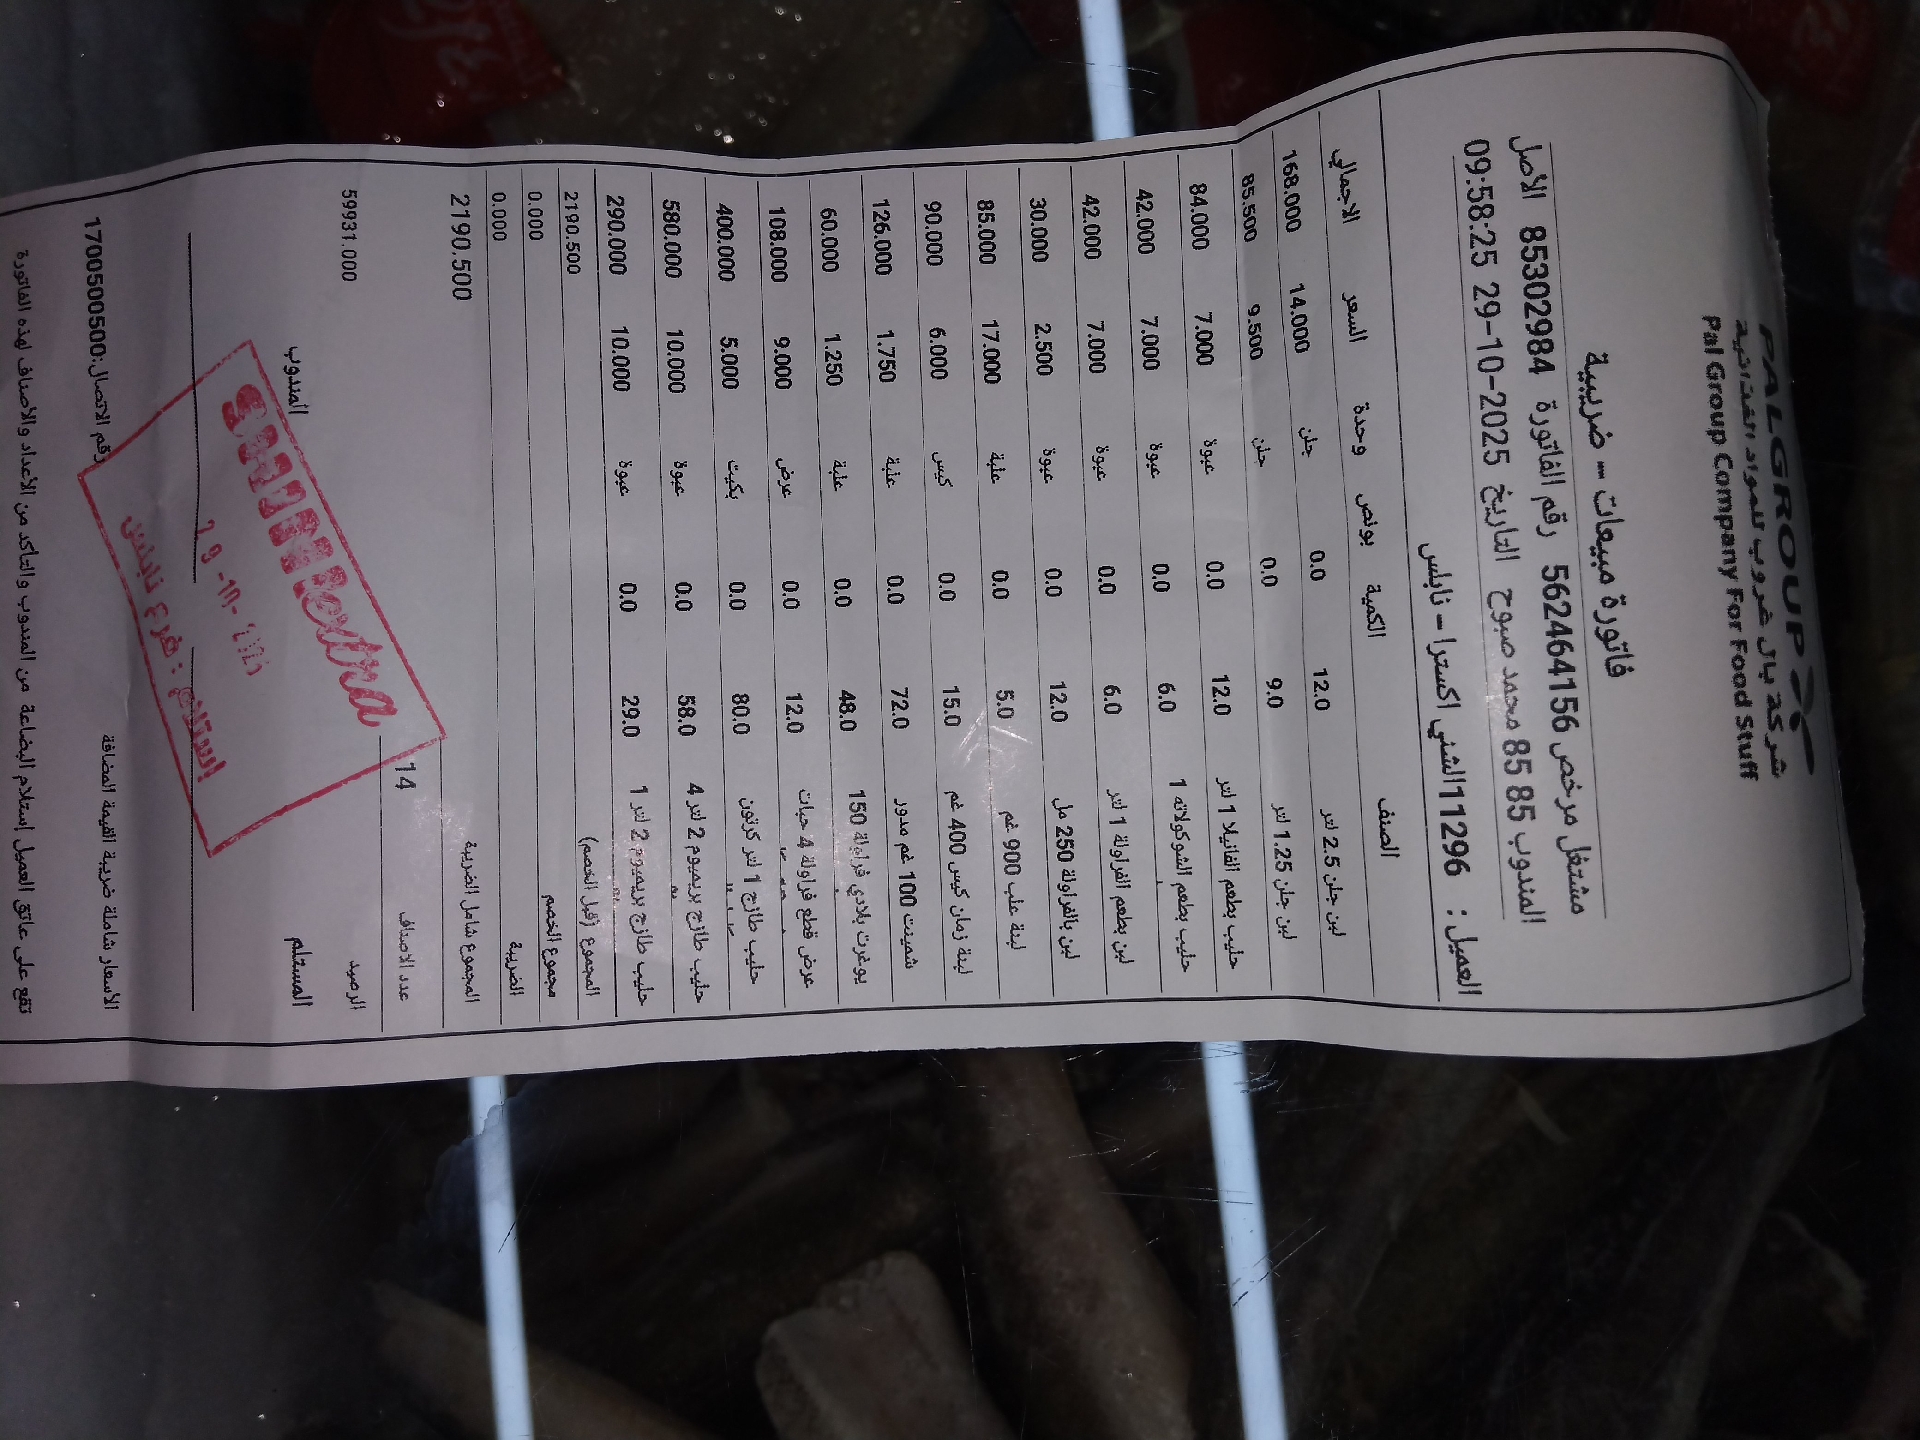 PALGROUP
شركة بال غروب للمواد الغذائية
Pal Group Company For Food Stuff
فاتورة مبيعات - ضريبية
مشتغل مرخص 562464156 رقم الفاتورة 85302984 الأصل
المندوب 85 85 محمد صبوح التاريخ 29-10-2025 09:58:25
العميل : 11296 الشني اكسترا - نابلس
الصنف الكمية بونص وحدة السعر الاجمالي
لبن جلن 2.5 لتر 12.0 0.0 جلن 14.000 168.000
لبن جلن 1.25 لتر 9.0 0.0 جلن 9.500 85.500
حليب بطعم الفانيلا 1 لتر 12.0 0.0 عبوة 7.000 84.000
حليب بطعم الشوكولاته 1 6.0 0.0 عبوة 7.000 42.000
لبن بطعم الفراولة 1 لتر 6.0 0.0 عبوة 7.000 42.000
لبن بالفراولة 250 مل 12.0 0.0 عبوة 2.500 30.000
لبنة علب 900 غم 5.0 0.0 علبة 17.000 85.000
لبنة زمان كيس 400 غم 15.0 0.0 كيس 6.000 90.000
شمينت 100 غم مدور 72.0 0.0 علبة 1.750 126.000
يوغرت بلادي فراولة 150 48.0 0.0 علبة 1.250 60.000
عرض قطع فراولة 4 حبات 12.0 0.0 عرض 9.000 108.000
حليب طازج 1 لتر كرتون 80.0 0.0 بكيت 5.000 400.000
حليب طازج بريميوم 2 لتر 4 58.0 0.0 عبوة 10.000 580.000
حليب طازج بريميوم 2 لتر 1 29.0 0.0 عبوة 10.000 290.000
المجموع (قبل الخصم) 2190.500
مجموع الخصم 0.000
الضريبة 0.000
المجموع شامل الضريبة 2190.500
عدد الاصناف 14
الرصيد 59931.000
المستلم المندوب
SHINIextra
29 -10-
إستلام : فرع نابلس
الأسعار شاملة ضريبة القيمة المضافة رقم الاتصال:1700500500
تقع على عاتق العميل إستلام البضاعة من المندوب والتأكد من الأعداد والأصناف لهذه الفاتورة